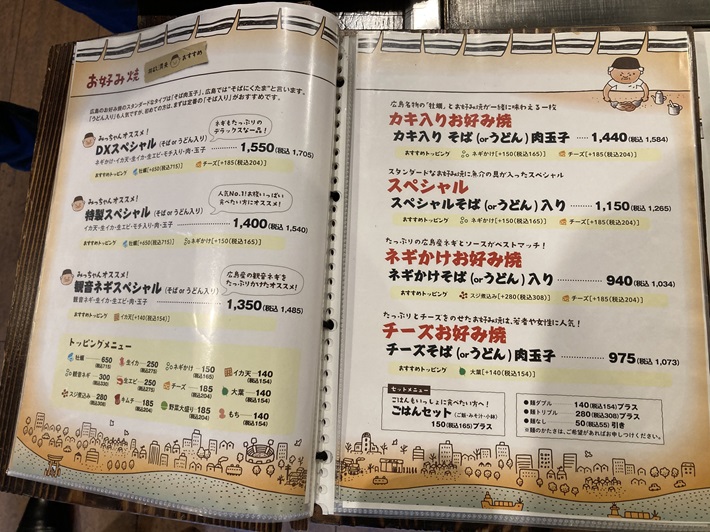 お好み焼
おすすめ
広島のお好み焼のスタンダードなタイプは「そば肉玉子」、広島では"そばにくたま"と言います。
「うどん入り」も人気ですが、初めての方は、まずは定番の「そば入り」がおすすめです。
みっちゃんオススメ!
DXスペシャル (そば or うどん入り) 1,550 (税込 1,705)
ネギもたっぷりの
デラックスな一品!
ネギかけ・イカ天・生イカ・生エビ・モチ入り・肉・玉子
おすすめトッピング 牡蠣[+650(税込715)] チーズ[+185(税込204)]
みっちゃんオススメ!
特製スペシャル (そば or うどん入り) 1,400 (税込 1,540)
人気No.1!お腹いっぱい
食べたい方にオススメ!
イカ天・生イカ・生エビ・モチ入り・肉・玉子
おすすめトッピング 牡蠣[+650(税込715)] ネギかけ[+150(税込165)]
みっちゃんオススメ!
観音ネギスペシャル (そば or うどん入り) 1,350 (税込 1,485)
広島産の観音ネギを
たっぷりかけたオススメ!
観音ネギ・生イカ・生エビ・肉・玉子
おすすめトッピング イカ天[+140(税込154)]
トッピングメニュー
牡蠣 650 (税込715) 生イカ 250 (税込275) ネギかけ 150 (税込165) イカ天 140 (税込154)
観音ネギ 300 (税込330) 生エビ 250 (税込275) チーズ 185 (税込204) 大葉 140 (税込154)
スジ煮込み 280 (税込308) キムチ 185 (税込204) 野菜大盛り 185 (税込204) もち 140 (税込154)
広島名物の「牡蠣」とお好み焼が一緒に味わえる一枚
カキ入りお好み焼
カキ入り そば (or うどん) 肉玉子 1,440 (税込 1,584)
おすすめトッピング ネギかけ[+150(税込165)] チーズ[+185(税込204)]
スタンダードなお好み焼に魚介の具が入ったスペシャル
スペシャル
スペシャルそば (or うどん) 入り 1,150 (税込 1,265)
おすすめトッピング ネギかけ[+150(税込165)] チーズ[+185(税込204)]
たっぷりの広島産ネギとソースがベストマッチ!
ネギかけお好み焼
ネギかけそば (or うどん) 入り 940 (税込 1,034)
おすすめトッピング スジ煮込み[+280(税込308)] チーズ[+185(税込204)]
たっぷりとチーズをのせたお好み焼は、若者や女性に人気!
チーズお好み焼
チーズそば (or うどん) 肉玉子 975 (税込 1,073)
おすすめトッピング 大葉[+140(税込154)]
セットメニュー
ごはんもいっしょに食べたい方へ!
ごはんセット (ご飯・みそ汁・小鉢)
150(税込165)プラス
●麺ダブル 140(税込154)プラス
●麺トリプル 280(税込308)プラス
●麺なし 50(税込55)引き
※麺のかたさは、ご希望があればお申しつけください。